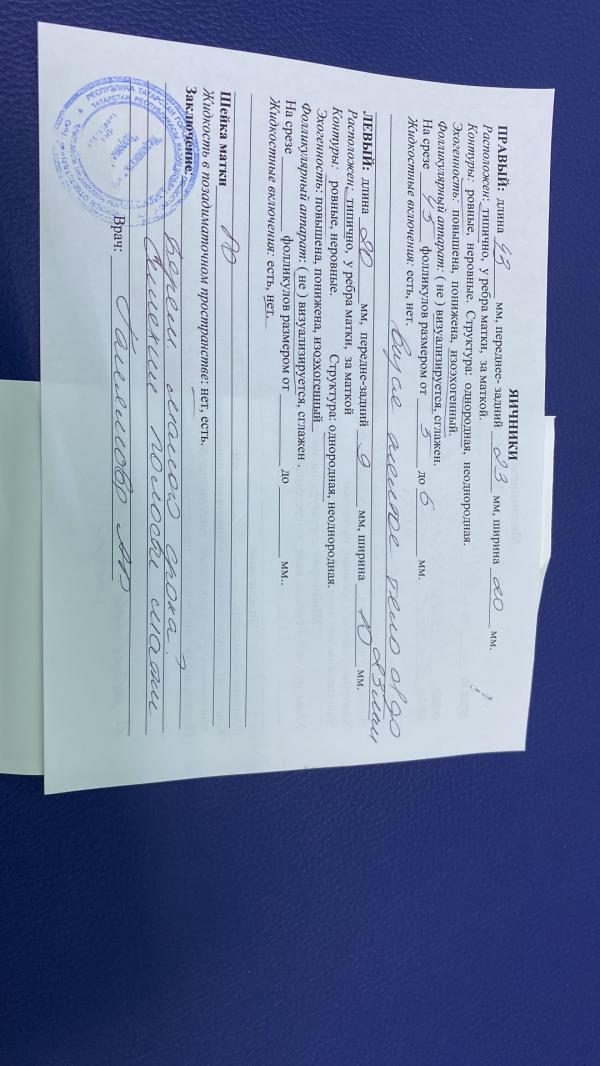 ЯИЧНИКИ
ПРАВЫЙ: длина 43 мм, переднее- задний 23 мм, ширина 20 мм.
Расположен: типично, у ребра матки, за маткой.
Контуры: ровные, неровные. Структура: однородная, неоднородная.
Эхогенность: повышена, понижена, изоэхогенный.
Фолликулярный аппарат: ( не ) визуализируется, сглажен.
На срезе 4-5 фолликулов размером от 5 до 6 мм.
Жидкостные включения: есть, нет.
тело
ЛЕВЫЙ: длина 20 мм, передне-задний 9 мм, ширина 10 мм.
Расположен: типично, у ребра матки, за маткой
Контуры: ровные, неровные. Структура: однородная, неоднородная.
Эхогенность: повышена, понижена, изоэхогенный
Фолликулярный аппарат: ( не ) визуализируется, сглажен .
На срезе фолликулов размером от до мм..
Жидкостные включения: есть, нет.
Шейка матки
Жидкость в позадиматочном пространстве: нет, есть.
Заключение:
Берем малого срока ?
полости матки
Врач:
РЕСПУБЛИКА ТАТАРСТАН